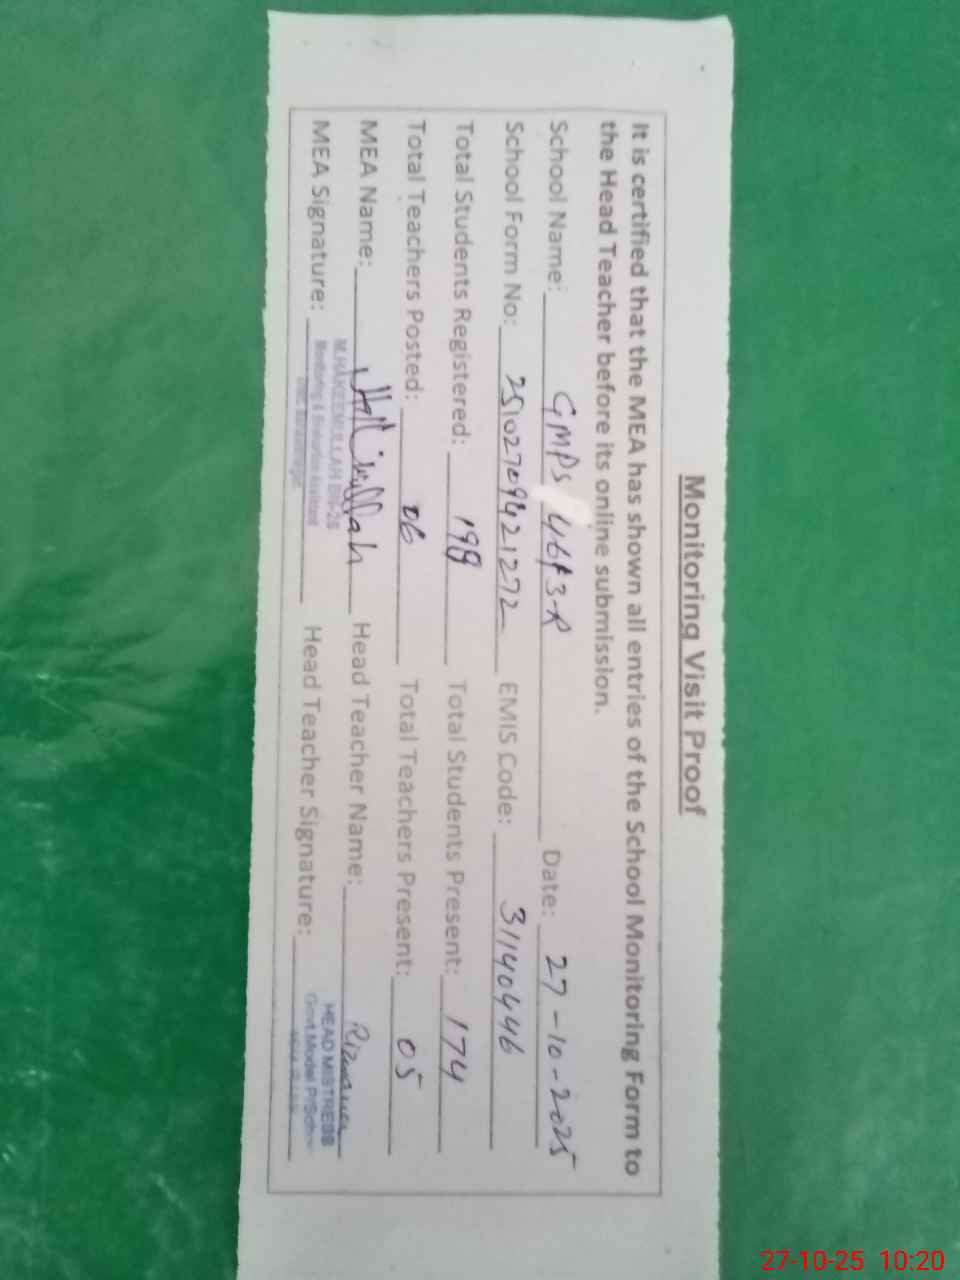 Monitoring Visit Proof
It is certified that the MEA has shown all entries of the School Monitoring Form to
the Head Teacher before its online submission.
School Name: GMPS 46/3-R Date: 27-10-2025
School Form No: 25102709421272 EMIS Code: 31140446
Total Students Registered: 198 Total Students Present: 174
Total Teachers Posted: 06 Total Teachers Present: 05
MEA Name: Head Teacher Name:
M.HAKEEMULLAH
Monitoring & Evaluation Assistant
HEAD MISTRESS
Govt.Model P/School
MEA Signature: Head Teacher Signature:
27-10-25 10:20